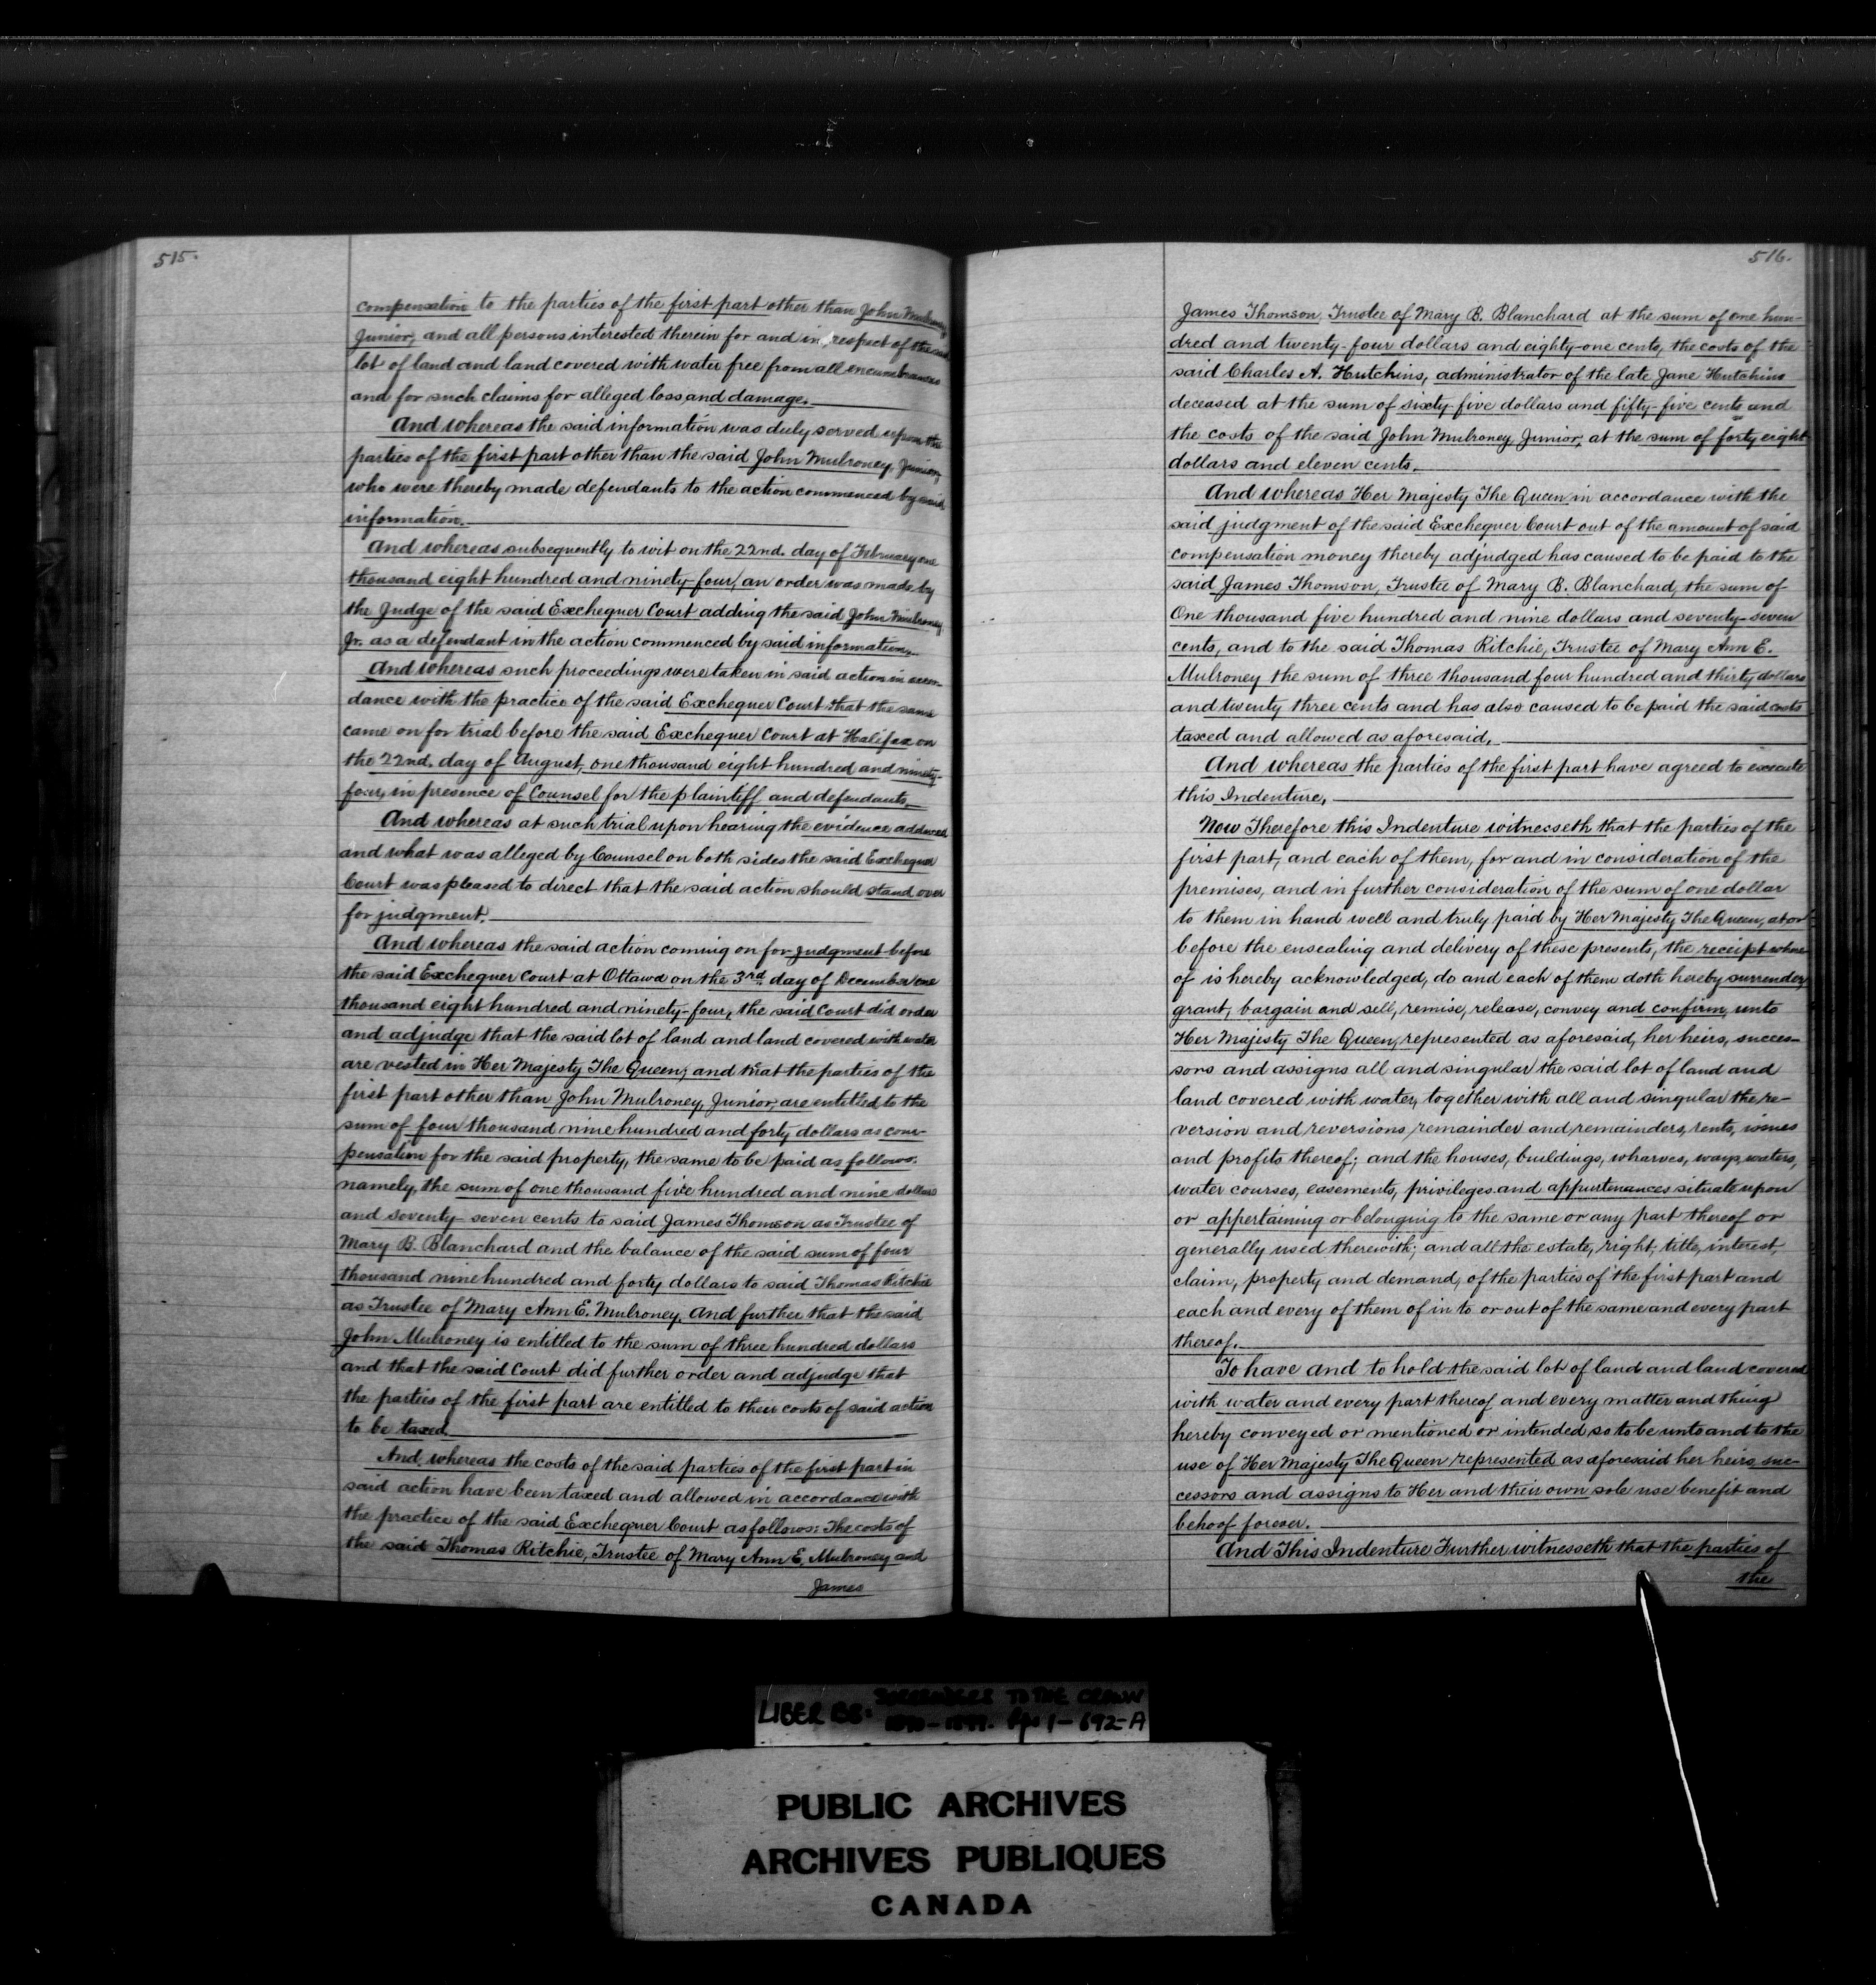 515.
compensation to the parties of the first part other than John Mulroney
Junior, and all persons interested therein for and in respect of the said
lot of land and land covered with water free from all encumbrances
and for such claims for alleged loss and damage.
And whereas the said information was duly served upon the
parties of the first part other than the said John Mulroney, Junior,
who were thereby made defendants to the action commenced by said
information.
And whereas subsequently to wit on the 22nd. day of February one
thousand eight hundred and ninety-four, an order was made by
the Judge of the said Exchequer Court adding the said John Mulroney
Jr. as a defendant in the action commenced by said information.
And whereas such proceedings were taken in said action in accor-
dance with the practice of the said Exchequer Court that the same
came on for trial before the said Exchequer Court at Halifax on
the 22nd. day of August, one thousand eight hundred and ninety-
four, in presence of Counsel for the plaintiff and defendants.
And whereas at such trial upon hearing the evidence adduced
and what was alleged by Counsel on both sides the said Exchequer
Court was pleased to direct that the said action should stand over
for judgment.
And whereas the said action coming on for judgment before
the said Exchequer Court at Ottawa on the 3rd. day of December one
thousand eight hundred and ninety-four, the said Court did order
and adjudge that the said lot of land and land covered with water
are vested in Her Majesty The Queen; and that the parties of the
first part other than John Mulroney, Junior, are entitled to the
sum of four thousand nine hundred and forty dollars as com-
pensation for the said property, the same to be paid as follows:
namely, the sum of one thousand five hundred and nine dollars
and seventy-seven cents to said James Thomson as Trustee of
Mary B. Blanchard and the balance of the said sum of four
thousand nine hundred and forty dollars to said Thomas Ritchie
as Trustee of Mary Ann E. Mulroney. And further that the said
John Mulroney is entitled to the sum of three hundred dollars
and that the said Court did further order and adjudge that
the parties of the first part are entitled to their costs of said action
to be taxed.
And whereas the costs of the said parties of the first part in
said action have been taxed and allowed in accordance with
the practice of the said Exchequer Court as follows: The costs of
the said Thomas Ritchie, Trustee of Mary Ann E. Mulroney and
James
516.
James Thomson, Trustee of Mary B. Blanchard at the sum of one hun-
dred and twenty-four dollars and eighty-one cents, the costs of the
said Charles A. Hutchins, administrator of the late Jane Hutchins
deceased at the sum of sixty-five dollars and fifty-five cents and
the costs of the said John Mulroney, Junior, at the sum of forty eight
dollars and eleven cents.
And whereas Her Majesty The Queen in accordance with the
said judgment of the said Exchequer Court out of the amount of said
compensation money thereby adjudged has caused to be paid to the
said James Thomson, Trustee of Mary B. Blanchard, the sum of
One thousand five hundred and nine dollars and seventy-seven
cents, and to the said Thomas Ritchie, Trustee of Mary Ann E.
Mulroney the sum of three thousand four hundred and thirty dollars
and twenty three cents and has also caused to be paid the said costs
taxed and allowed as aforesaid.
And whereas the parties of the first part have agreed to execute
this Indenture.
Now Therefore this Indenture witnesseth that the parties of the
first part, and each of them, for and in consideration of the
premises, and in further consideration of the sum of one dollar
to them in hand well and truly paid by Her Majesty The Queen, at or
before the ensealing and delivery of these presents, the receipt where-
of is hereby acknowledged, do and each of them doth hereby surrender,
grant, bargain and sell, remise, release, convey and confirm, unto
Her Majesty The Queen, represented as aforesaid, her heirs, succes-
sors and assigns all and singular the said lot of land and
land covered with water, together with all and singular the re-
version and reversions, remainder and remainders, rents, issues
and profits thereof; and the houses, buildings, wharves, ways, waters,
water courses, easements, privileges and appurtenances situate upon
or appertaining or belonging to the same or any part thereof or
generally used therewith; and all the estate, right, title, interest,
claim, property and demand, of the parties of the first part and
each and every of them of in to or out of the same and every part
thereof.
To have and to hold the said lot of land and land covered
with water and every part thereof and every matter and thing
hereby conveyed or mentioned or intended so to be unto and to the
use of Her Majesty The Queen represented as aforesaid her heirs suc-
cessors and assigns to Her and their own sole use benefit and
behoof forever.
And This Indenture Further witnesseth that the parties of
the
LIBER BB: SURRENDERS TO THE CROWN
1890-1899. Pgs 1-692-A
PUBLIC ARCHIVES
ARCHIVES PUBLIQUES
CANADA